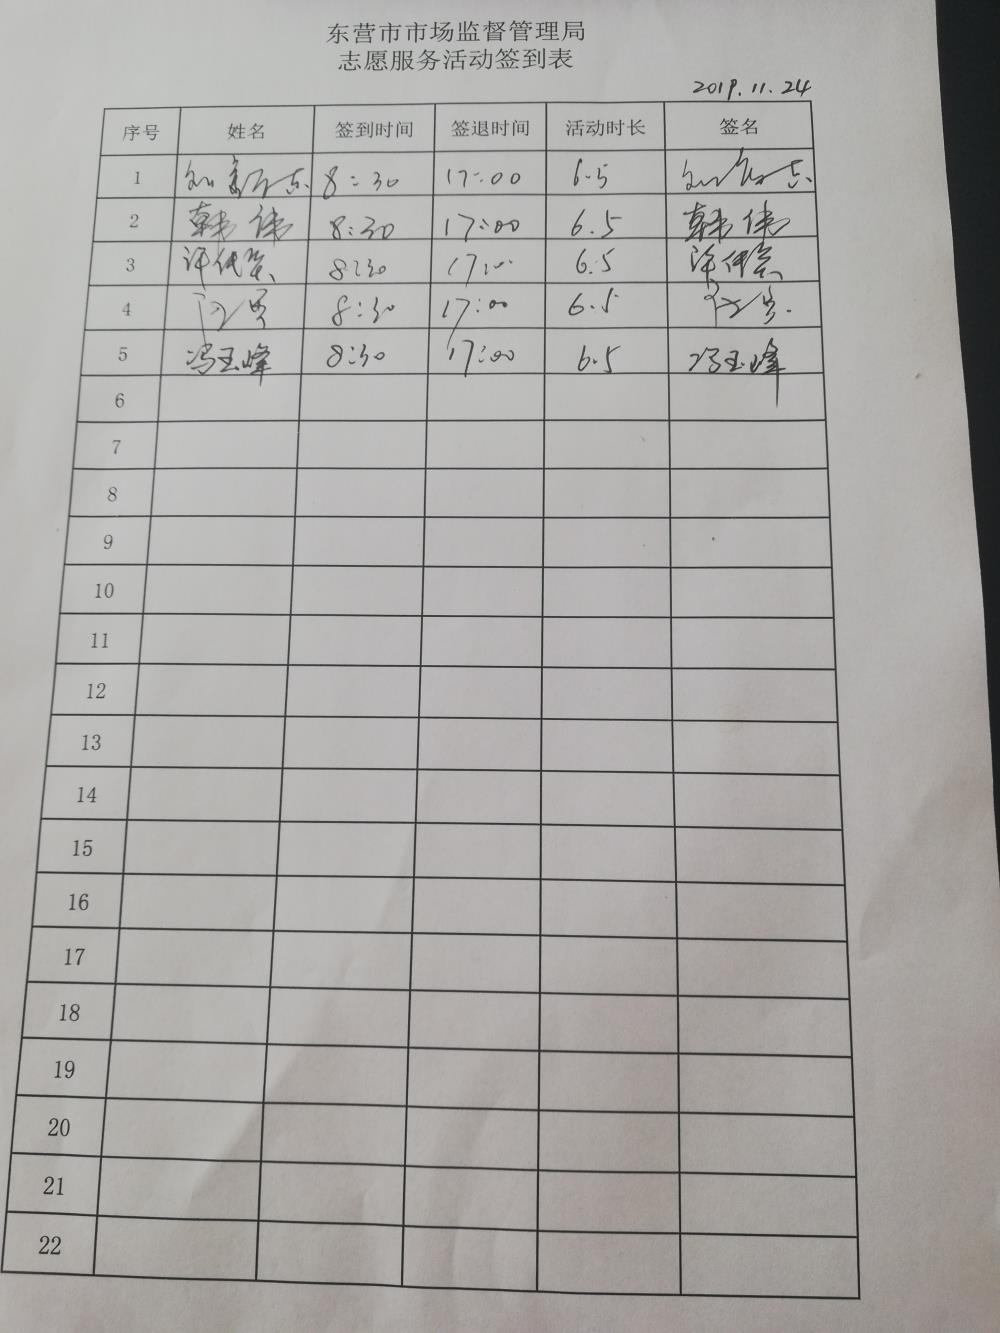 东营市市场监督管理局
志愿服务活动签到表
2019.11.24
序号 姓名 签到时间 签退时间 活动时长 签名
1 8:30 17:00 6.5
2 韩伟 8:30 17:00 6.5 韩伟
3 8:30 17:00 6.5
4 8:30 17:00 6.5
5 冯玉峰 8:30 17:00 6.5 冯玉峰
6
7
8
9
10
11
12
13
14
15
16
17
18
19
20
21
22